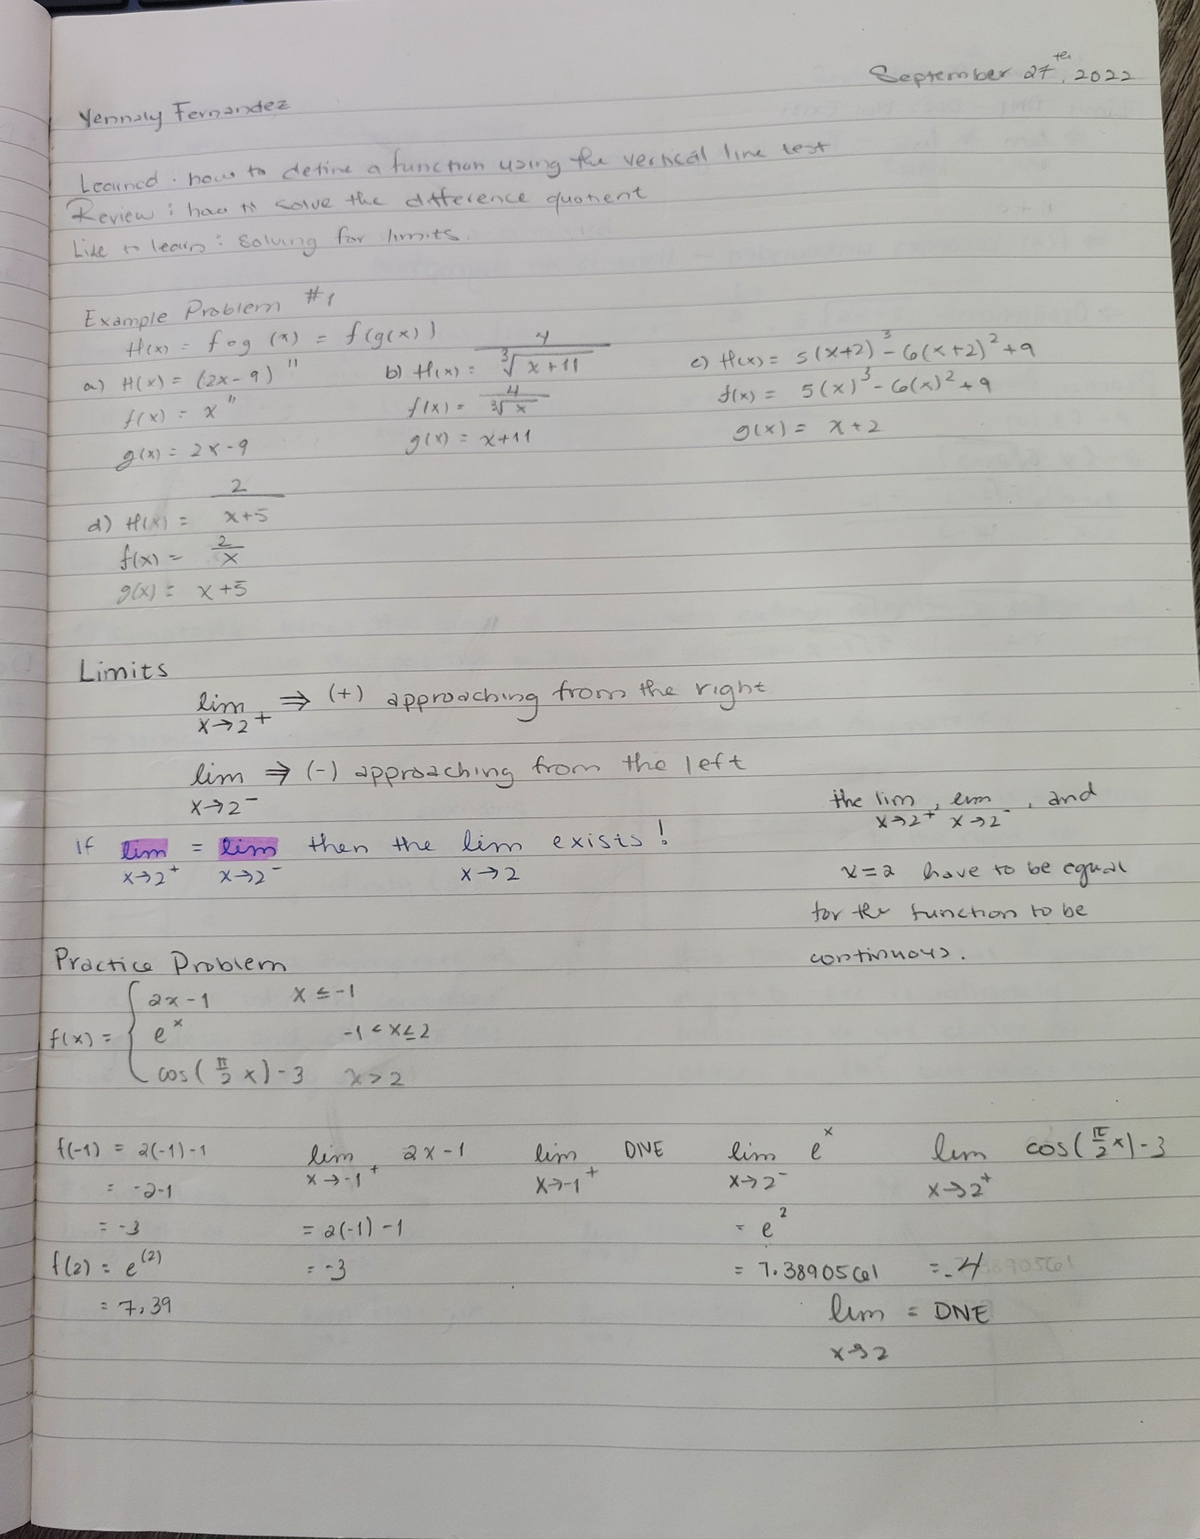 September 27th, 2022
Yennaly Fernandez
Learned: how to define a function using the vertical line test
Review: how to solve the difference quotient
Like to learn: Solving for limits.
Example Problem #1
H(x) = f∘g (x) = f(g(x))
a) H(x) = (2x-9)¹¹
f(x) = x¹¹
g(x) = 2x-9
b) H(x) = 4/∛(x+11)
f(x) = 4/∛x
g(x) = x+11
c) H(x) = 5(x+2)³-6(x+2)²+9
f(x) = 5(x)³-6(x)²+9
g(x) = x+2
d) H(x) = 2/(x+5)
f(x) = 2/x
g(x) = x+5
Limits
lim x→2⁺ ⇒ (+) approaching from the right
lim x→2⁻ ⇒ (-) approaching from the left
If lim x→2⁺ = lim x→2⁻ then the lim x→2 exists!
the lim x→2⁺, lim x→2⁻, and
x=2 have to be equal
for the function to be
continuous.
Practice Problem
f(x) = { 2x-1 x ≤ -1
e^x -1 < x ≤ 2
cos(π/2 x)-3 x > 2
f(-1) = 2(-1)-1
= -2-1
= -3
f(2) = e^(2)
= 7.39
lim x→-1⁺ 2x-1
= 2(-1)-1
= -3
lim x→-1⁺ DNE
lim x→2⁻ e^x
= e²
= 7.3890561
lim x→2⁺ cos(π/2 x)-3
= -4
lim x→2 = DNE